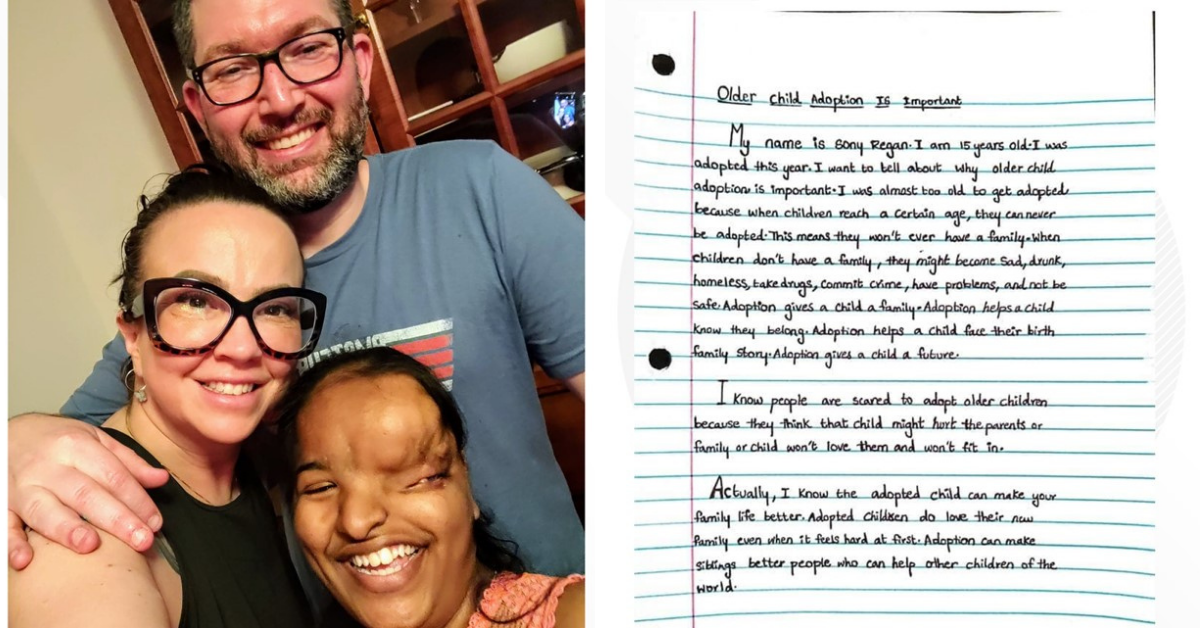 Older child Adoption Is Important
My name is Sony Regan. I am 15 years old. I was
adopted this year. I want to tell about why older child
adoption is important. I was almost too old to get adopted
because when children reach a certain age, they can never
be adopted. This means they won't ever have a family. When
children don't have a family, they might become sad, drunk,
homeless, take drugs, commit crime, have problems, and not be
safe. Adoption gives a child a family. Adoption helps a child
know they belong. Adoption helps a child face their birth
family story. Adoption gives a child a future.
I know people are scared to adopt older children
because they think that child might hurt the parents or
family or child won't love them and won't fit in.
Actually, I know the adopted child can make your
family life better. Adopted children do love their new
family even when it feels hard at first. Adoption can make
siblings better people who can help other children of the
world.